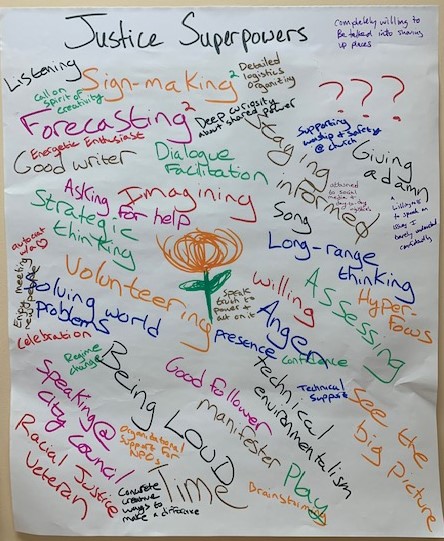 Justice Superpowers
completely willing to
be talked into showing
up places
Listening
Sign-making 2
Detailed
logistics
organizing
Call on
spirit of
creativity
???
Forecasting 2
Deep curiosity
about shared power
Staying
informed
Supporting
worship & safety
@ church
Energetic Enthusiast
Good writer
Dialogue
Facilitation
Giving
a damn
Asking
for help
Imagining
attuned
to social
media &
Song
willingness
to speak on
issues I
barely understand
confidently
Strategic
thinking
Long-range
thinking
autocrat
Enjoy meeting
new people
Volunteering
Solving world
problems
speak
truth to
power &
act on it
willing
Assessing
Hyper
Focus
Anger
presence
confidence
Celebration
Regime
change
Being LOUD
Good follower
Technical
environmentalism
Technical
Support
See the
big picture
Speaking @
City Council
manifester
Organizational
Support for
NPOs
Racial Justice
Veteran
Concrete
creative
ways to
make a difference
Time
Brainstorming
Play